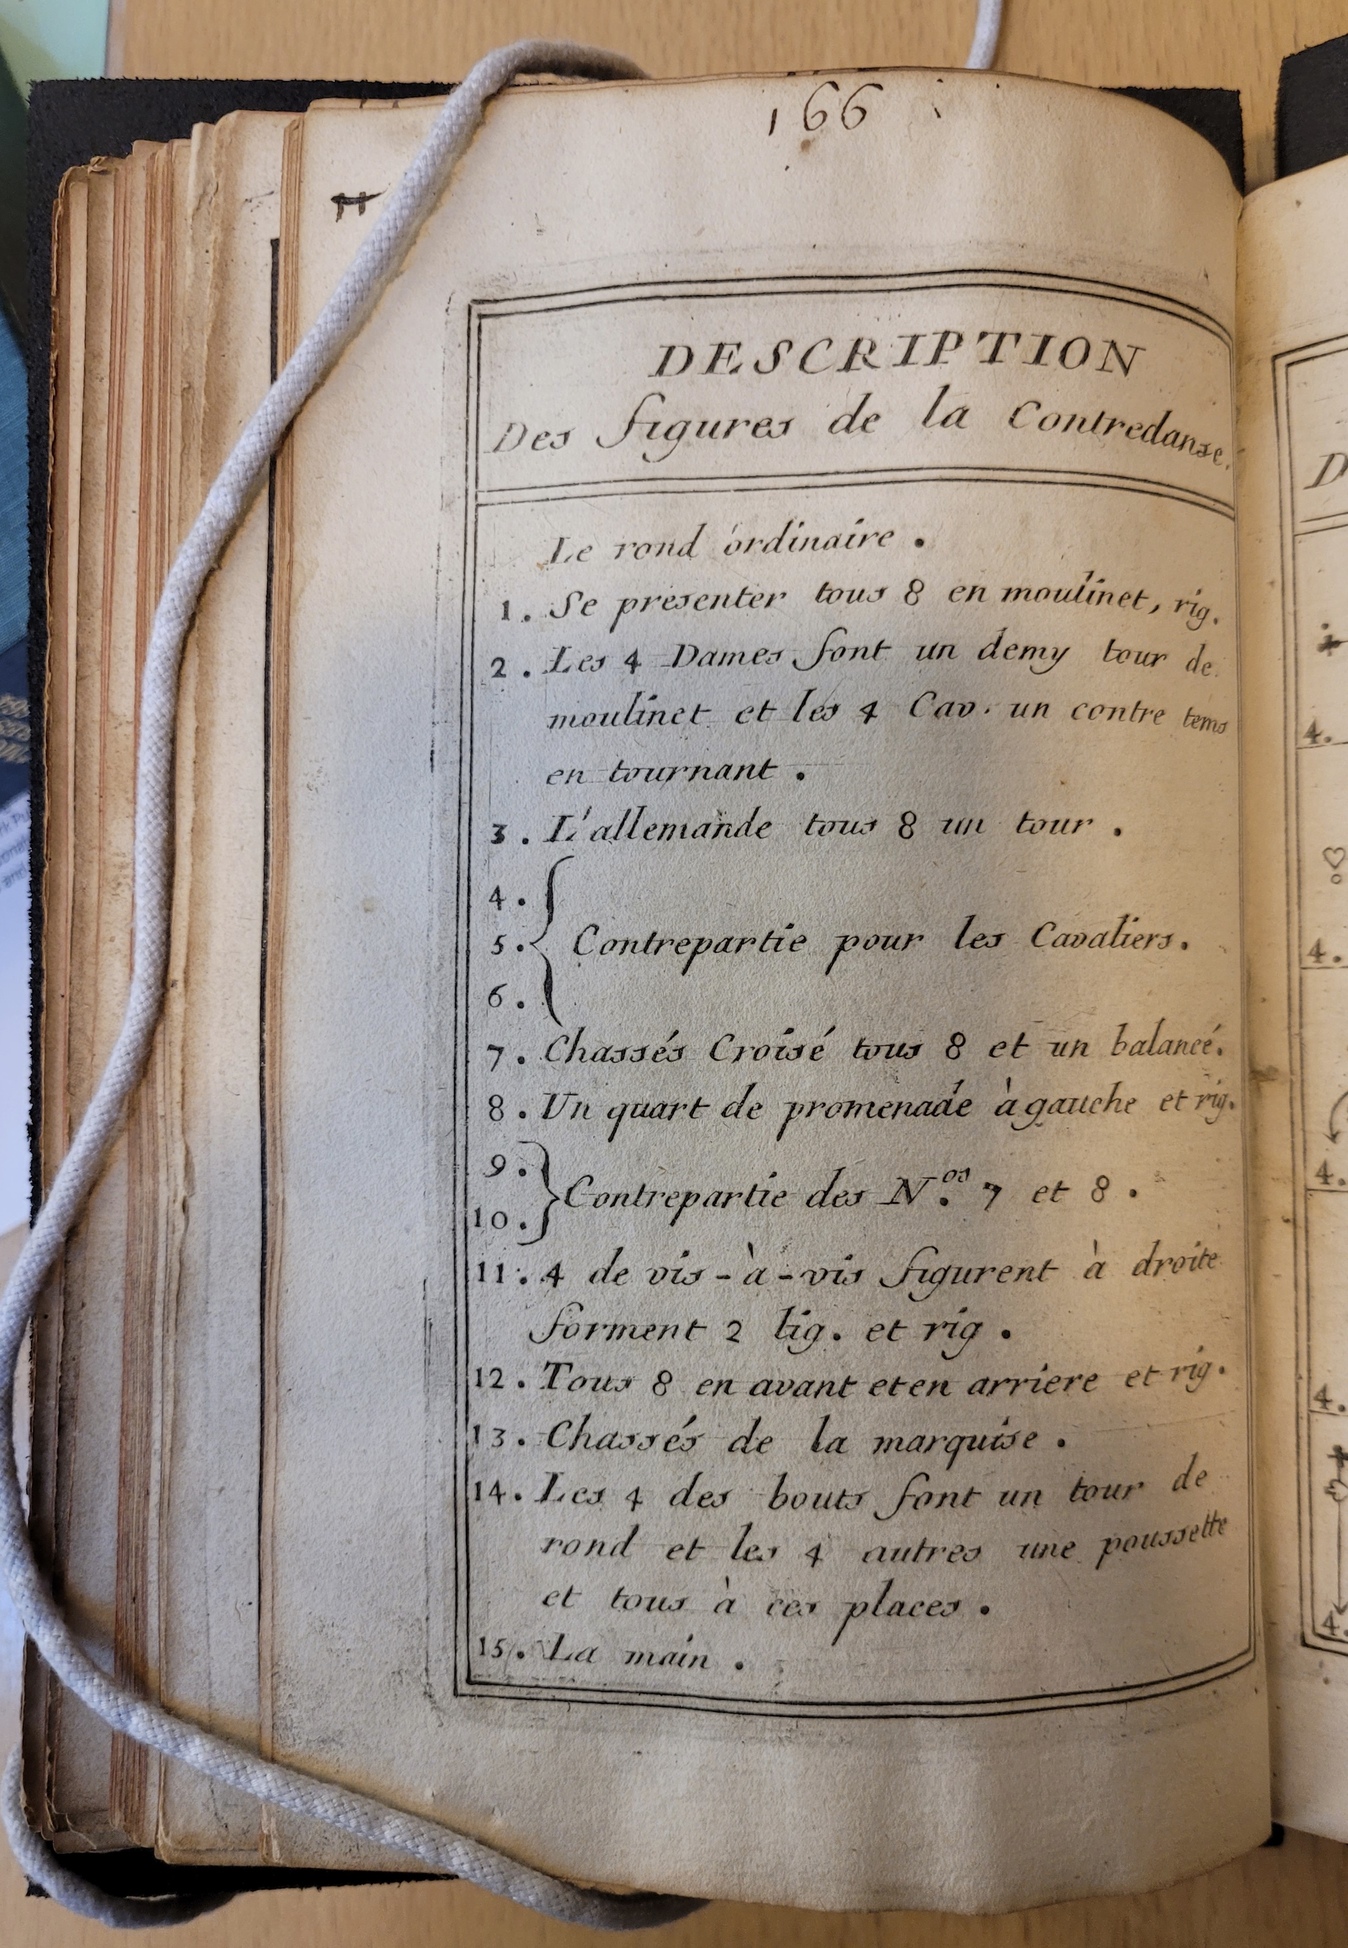 166
DESCRIPTION
Des figures de la Contredanse.
Le rond ordinaire.
1. Se presenter tous 8 en moulinet, rig.
2. Les 4 Dames font un demy tour de
moulinet et les 4 Cav. un contre tems
en tournant.
3. L'allemande tous 8 un tour.
4.
5. Contrepartie pour les Cavaliers.
6.
7. Chassés Croisé tous 8 et un balancé.
8. Un quart de promenade à gauche et rig.
9.
Contrepartie des N.os 7 et 8.
10.
11. 4 de vis-à-vis figurent à droite
forment 2 lig. et rig.
12. Tous 8 en avant et en arriere et rig.
13. Chassés de la marquise.
14. Les 4 des bouts font un tour de
rond et les 4 autres une poussette
et tous à ces places.
15. La main.
D
4.
4.
4.
4.
4.